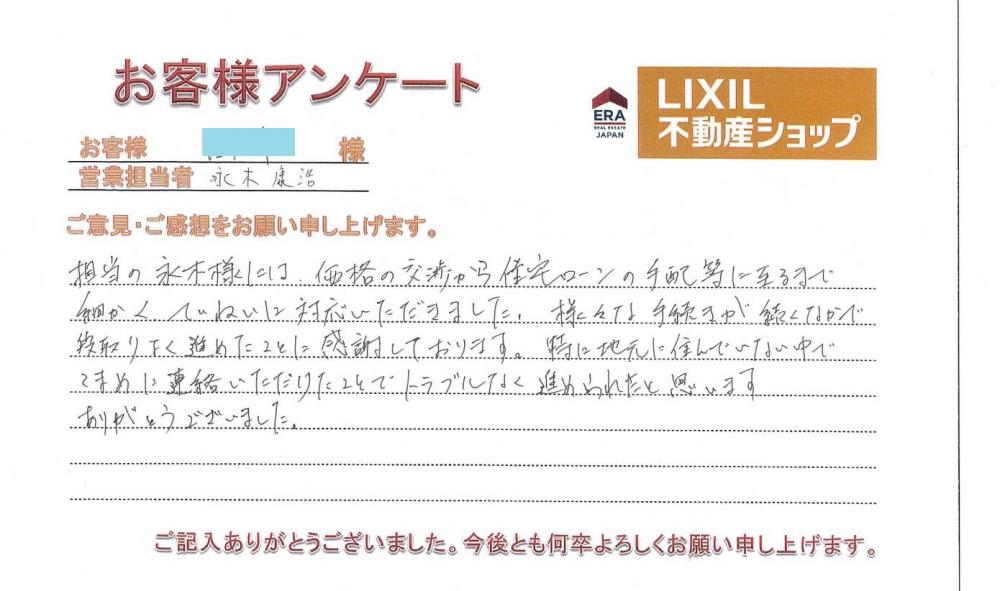 お客様アンケート
ERA
REAL ESTATE
JAPAN
LIXIL
不動産ショップ
お客様 様
営業担当者 永木康浩
ご意見・ご感想をお願い申し上げます。
担当の永木様には、価格の交渉から住宅ローンの手配等に至るまで
細かくていねいに対応いただきました。様々な手続きが続くなかで
段取りよく進めたことに感謝しております。特に地元に住んでいない中で
こまめに連絡いただけたことでトラブルなく進められたと思います
ありがとうございました。
ご記入ありがとうございました。今後とも何卒よろしくお願い申し上げます。